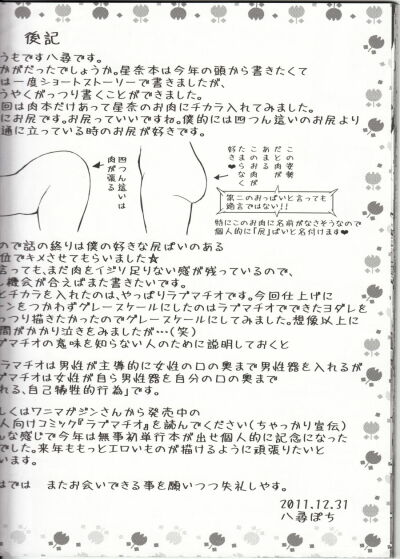 後記
うもです八尋です。
かがだったでしょうか。星奈本は今年の頭から書きたくて
は一度ショートストーリーで書きましたが、
うやくがっつり書くことができました。
回は肉本だけあって星奈のお肉にチカラ入れてみました。
にお尻です。お尻っていいですね。僕的には四つん這いのお尻より
通に立っている時のお尻が好きです。
四つん這いは
肉が張る
この姿勢
だとお肉が
あまるの
この肉が
好き♥
第二のおっぱいと言っても
過言ではない!!
特にこのお肉に名前がなさそうなので
個人的に「尻」ぱいと名付けます♥
ので話の終りは僕の好きな尻ぱいのある
位でキメさせてもらいました★
言っても、まだ肉をイジリ足りない感が残っているので、
し機会が合えばまた書きたいです。
とチカラを入れたのは、やっぱりラプマチオです。今回仕上げに
ーンをつかわずグレースケールにしたのはラプマチオでできたヨダレを
っつり描きたかったのでグレースケールにしてみました。想像以上に
間がかかり泣きをみましたが…(笑)
プマチオの意味を知らない人のために説明しておくと
ラマチオは男性が主導的に女性の口の奥まで男性器を入れるが
プマチオは女性が自ら男性器を自分の口の奥まで
れる、自己犠牲的行為」です。
しくはワニマガジンさんから発売中の
人向けコミック『ラプマチオ』を読んでください(ちゃっかり宣伝)
んな感じで今年は無事初単行本が出せ個人的に記念になった
でした。来年ももっとエロいものが描けるように頑張りたいと
います。
はでは　またお会いできる事を願いつつ失礼しやす。
2011.12.31
八尋ぽち